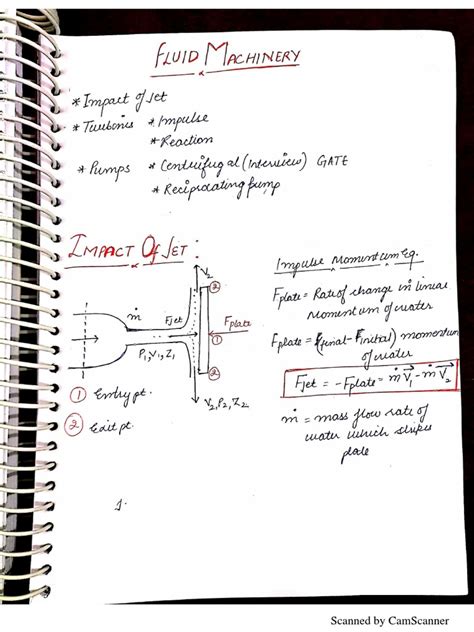 FLUID MACHINERY
* Impact of Jet
* Turbines * Impulse
* Reaction
* Pumps * Centrifugal (Interview) GATE
* Reciprocating pump
IMPACT OF JET :
V2
2
ṁ
FJet
Fplate
1
P1, V1, Z1
2
V2, P2, Z2
1 Entry pt.
2 Exit pt.
Impulse Momentum Eq.
Fplate = Rate of change in linear
momentum of water
Fplate = (Final - Finitial) momentum
of water
FJet = -Fplate = ṁV⃗1 - ṁV⃗2
ṁ = mass flow rate of
water which strikes
plate
1.
Scanned by CamScanner